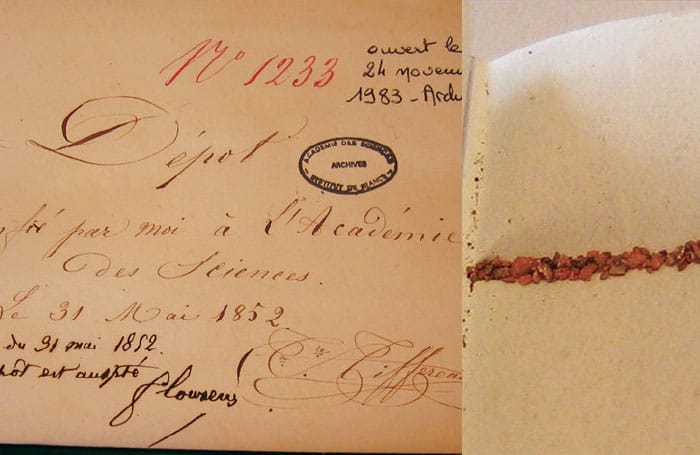 N° 1233
ouvert le
24 novem
1983 - Arch
Dépôt
ACADÉMIE DES SCIENCES
ARCHIVES
INSTITUT DE FRANCE
par moi à l'Académie
Des Sciences.
Le 31 Mai 1852
du 31 mai 1852.
est accepté
Flourens
Tiffereau